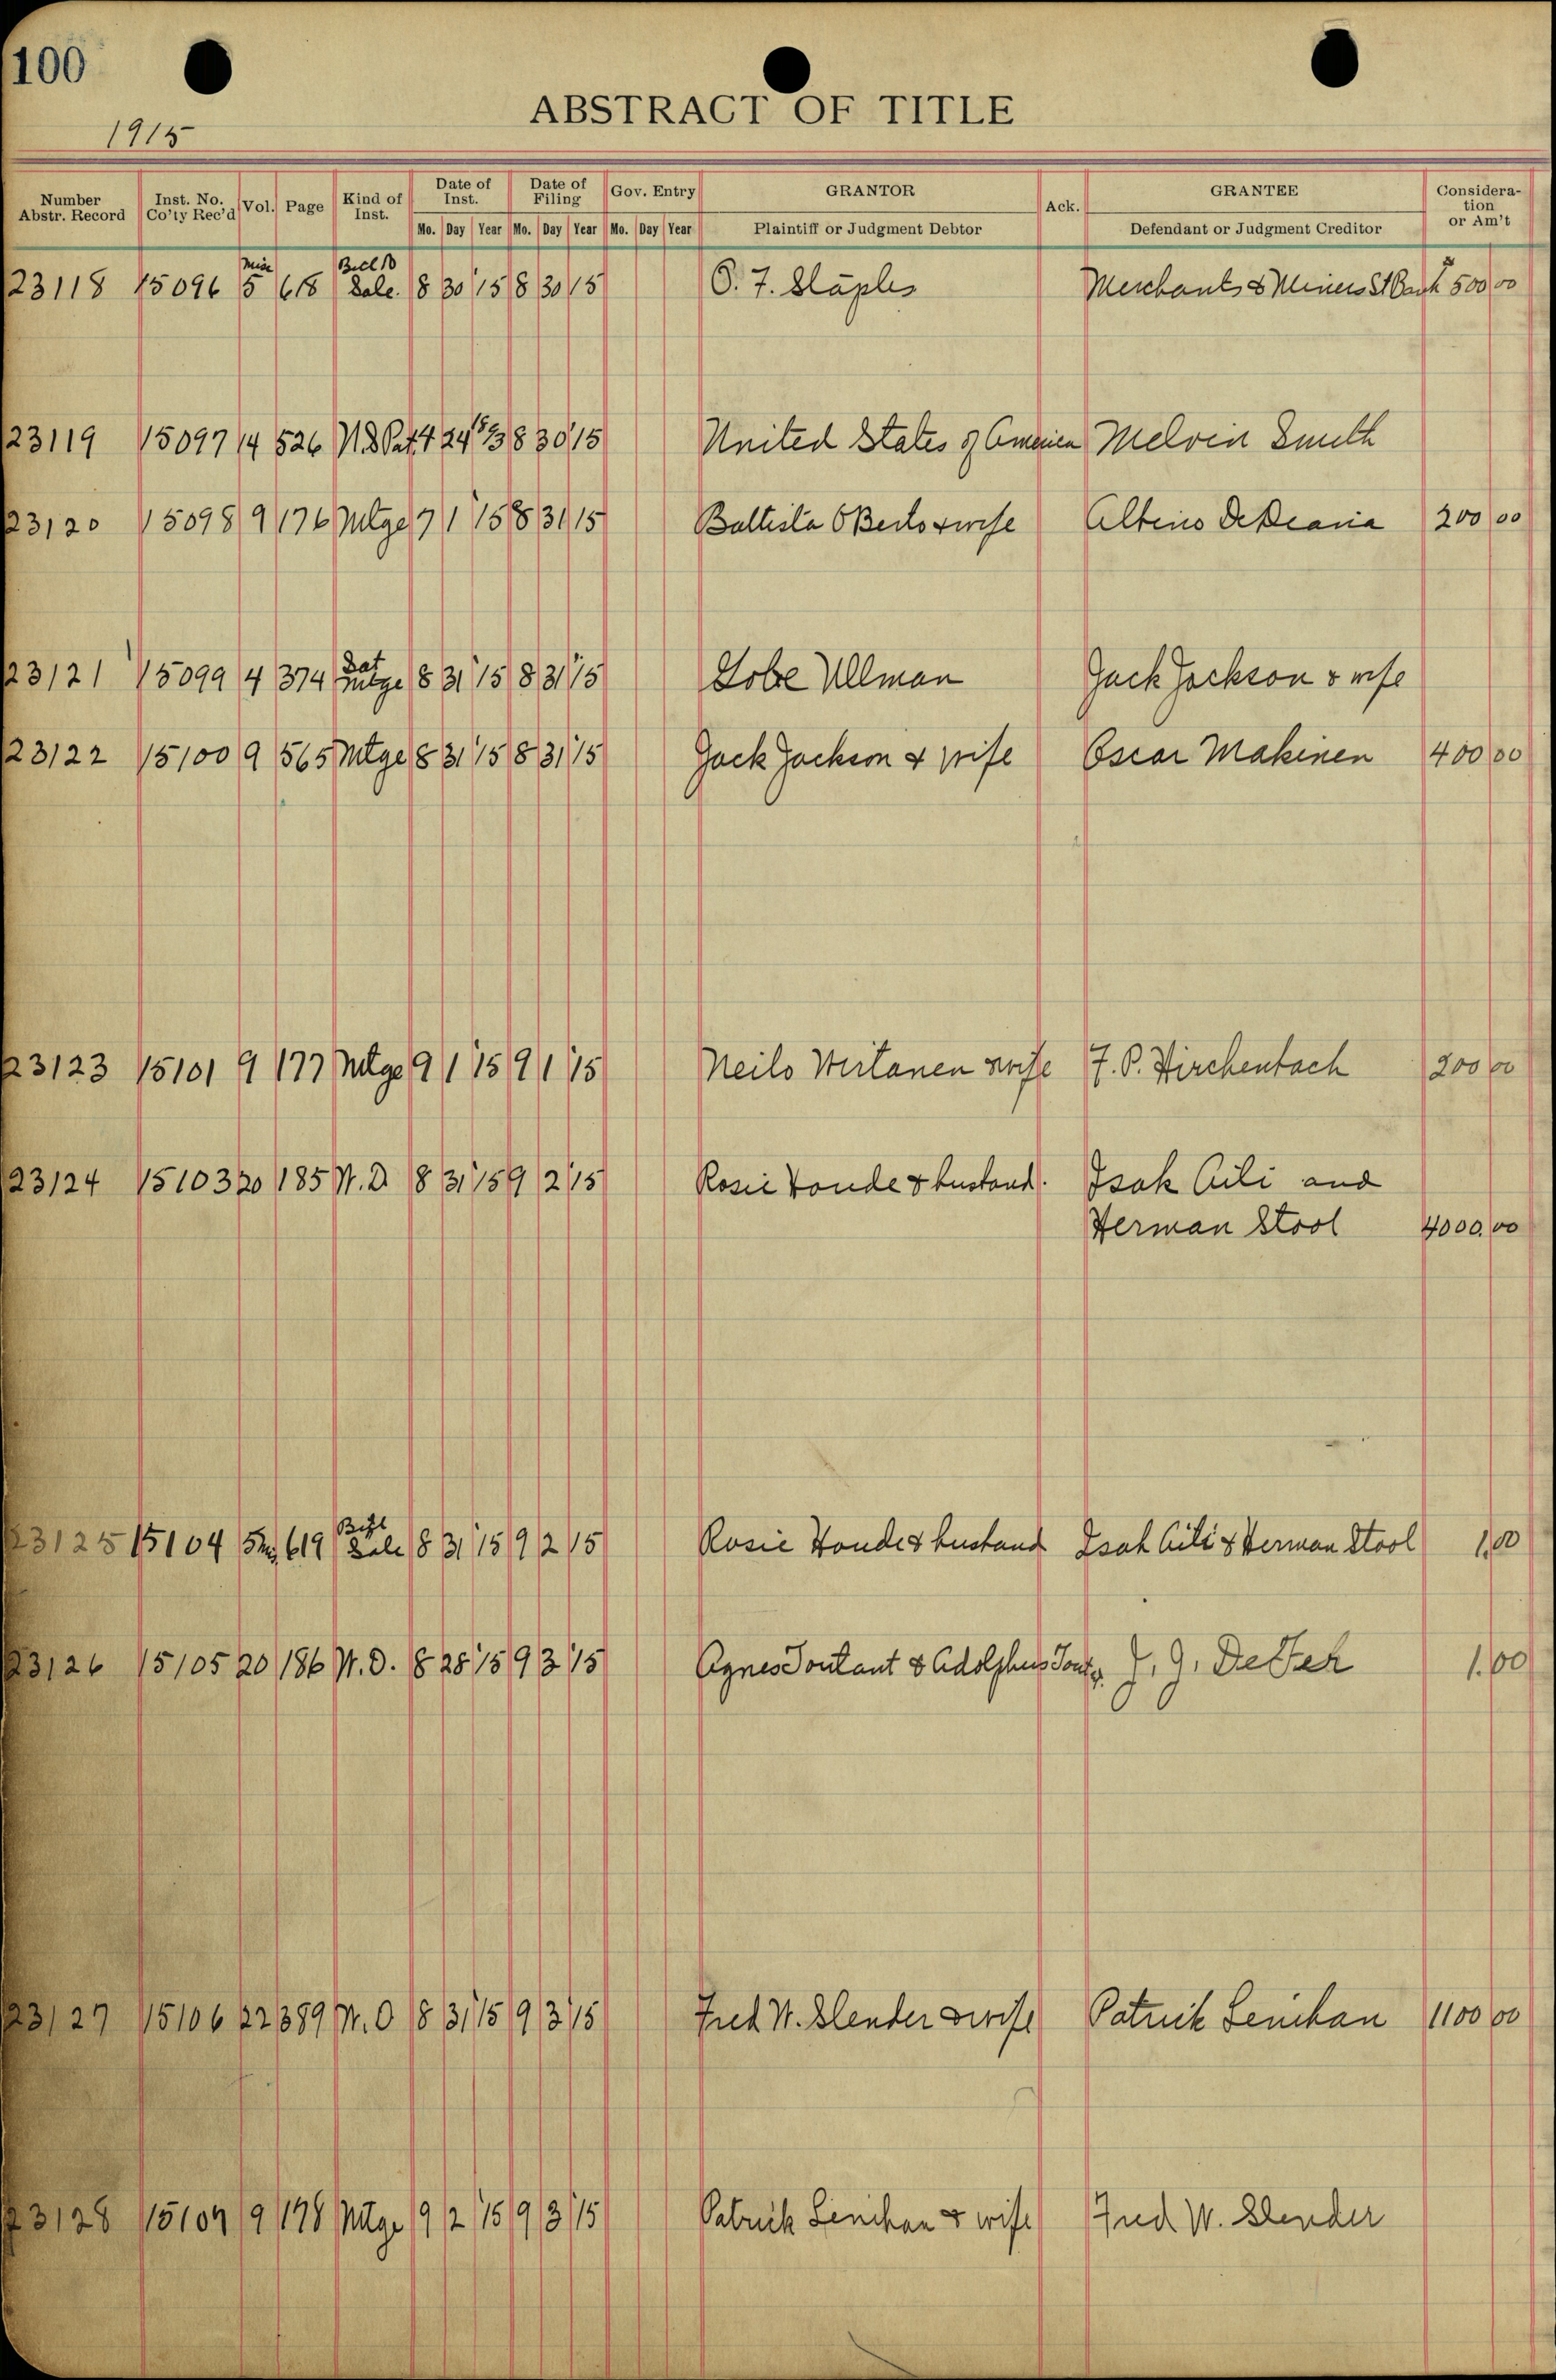 100
ABSTRACT OF TITLE
1915
Number Abstr. Record Inst. No. Co'ty Rec'd Vol. Page Kind of Inst. Date of Inst. Date of Filing Gov. Entry GRANTOR Ack. GRANTEE Consideration or Am't
Mo. Day Year Mo. Day Year Mo. Day Year Plaintiff or Judgment Debtor Defendant or Judgment Creditor
23118 15096 Misc 5 618 Bill Sale. 8 30 15 8 30 15 O. F. Staples Merchants & Miners St Bank 500 00
23119 15097 14 526 U.S Pat. 4 24 8 30 15 United States of America Melvin Smith
23120 15098 9 176 Mtge 7 1 15 8 31 15 Battista & wife Albino 200 00
23121 15099 4 374 Sat Mtge 8 31 15 8 31 15 Ullman Jack Jackson & wife
23122 15100 9 565 Mtge 8 31 15 8 31 15 Jack Jackson & wife Oscar Makinen 400 00
23123 15101 9 177 Mtge 9 1 15 9 1 15 Neilo Wirtanen & wife F. P. Hirchenbach 200 00
23124 15103 20 185 W. D 8 31 15 9 2 15 Rosie & husband. Isak Aili and
Herman Stool 4000.00
23125 15104 5 619 Sale 8 31 15 9 2 15 Rosie & husband Isak Aili & Herman Stool 1.00
23126 15105 20 186 W. D. 8 28 15 9 3 15 Agnes Toutant & Adolphus J. J. 1.00
23127 15106 22 389 W. D 8 31 15 9 3 15 Fred W. Slender & wife Patrick Lenihan 1100 00
23128 15107 9 178 Mtge 9 2 15 9 3 15 Patrick Lenihan & wife Fred W. Slender